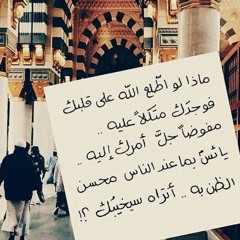 ماذا لو اطّلع الله على قلبك
فوجدك متكلاً عليه ..
مفوضاً جلَّ أمرك إليه ..
يائسٌ بما عند الناس محسن
الظن به .. أتراه سيخيبُك ؟!